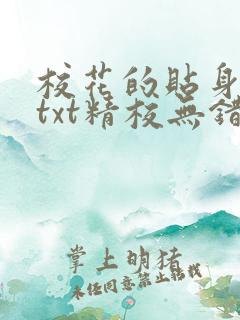 校花的貼身
txt精校無錯
掌上明珠
未经同意禁止转载